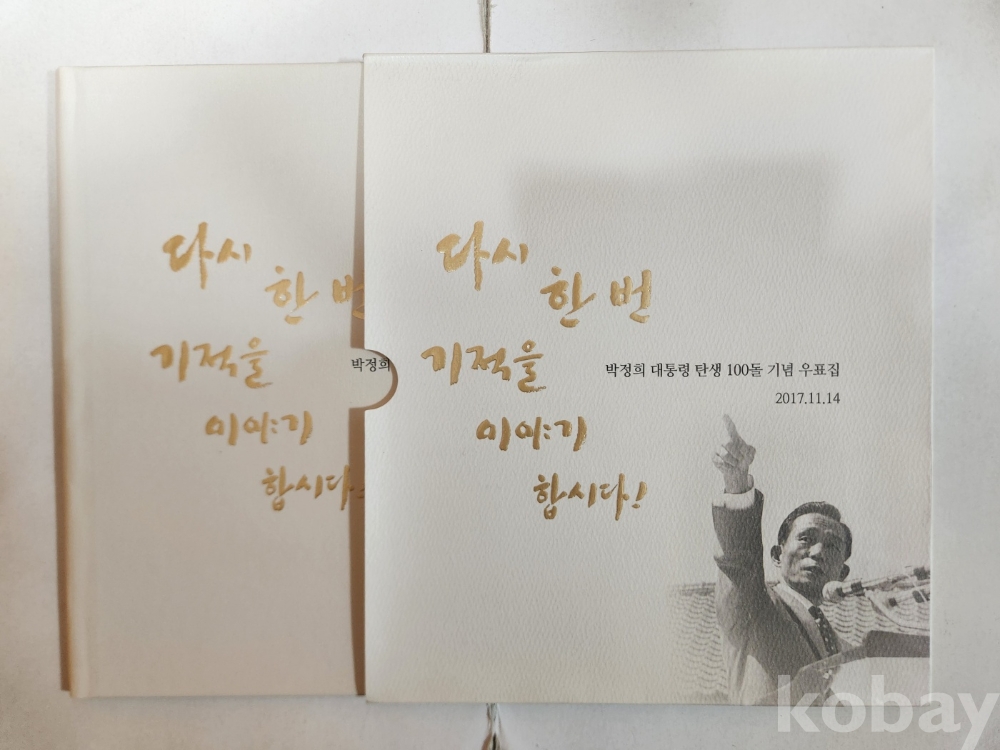 다시
한 번
기적을
이야기
합시다.
박정희
다시
한 번
기적을
이야기
합시다!
박정희 대통령 탄생 100돌 기념 우표집
2017.11.14
kobay